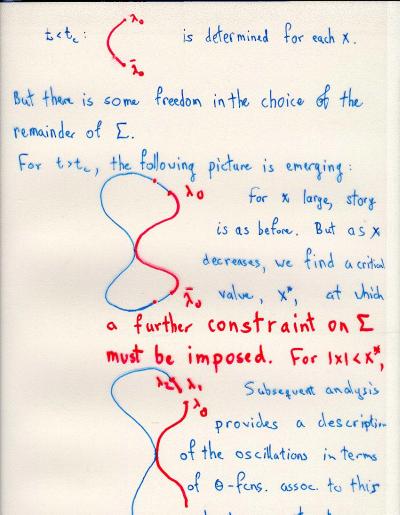 t<t_c: λ₀ is determined for each x.
λ̄₀
But there is some freedom in the choice of the
remainder of Σ.
For t>t_c, the following picture is emerging:
λ₀ For x large, story
is as before. But as x
decreases, we find a critical
λ̄₀ value, x*, at which
a further constraint on Σ
must be imposed. For |x|<x*,
λ₂ λ₁ Subsequent analysis
λ₀ provides a description
of the oscillations in terms
of θ-fcns. assoc. to this